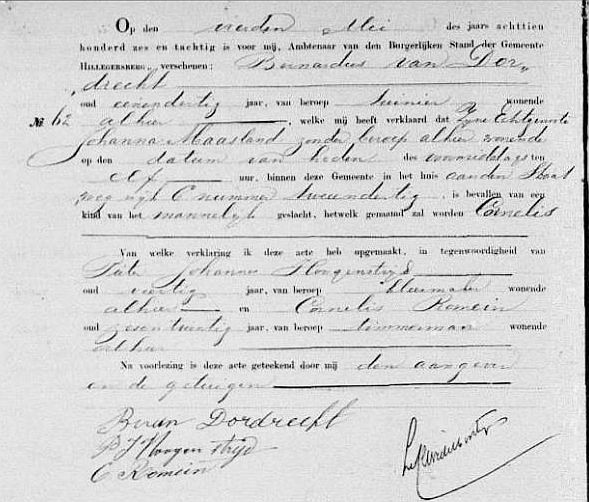 Op den vierden Mei des jaars achttien
honderd zes en tachtig is voor mij, Ambtenaar van den Burgerlijken Stand der Gemeente
HILLEGERSBERG, verschenen: Bernardus van Dor„
„drecht
oud eenendertig jaar, van beroep tuinier wonende
No. 62 alhier, welke mij heeft verklaard dat Zyne Echtgenoote
Johanna Maasland zonder beroep alhier wonende
op den datum van heden des voormiddags ten
elf uur, binnen deze Gemeente in het huis aan den Straat
weg wyk C nummer tweendertig, is bevallen van een
kind van het mannelyk geslacht, hetwelk genaamd zal worden Cornelis
Van welke verklaring ik deze acte heb opgemaakt, in tegenwoordigheid van
Pieter Johannes Hoogenstryd
oud veertig jaar, van beroep kleermaker wonende
alhier en Cornelis Romein
oud zesentwintig jaar, van beroep timmerman wonende
alhier
Na voorlezing is deze acte geteekend door mij den aangever
en de getuigen
B van Dordrecht
P J Hoogenstrijd
C Romein